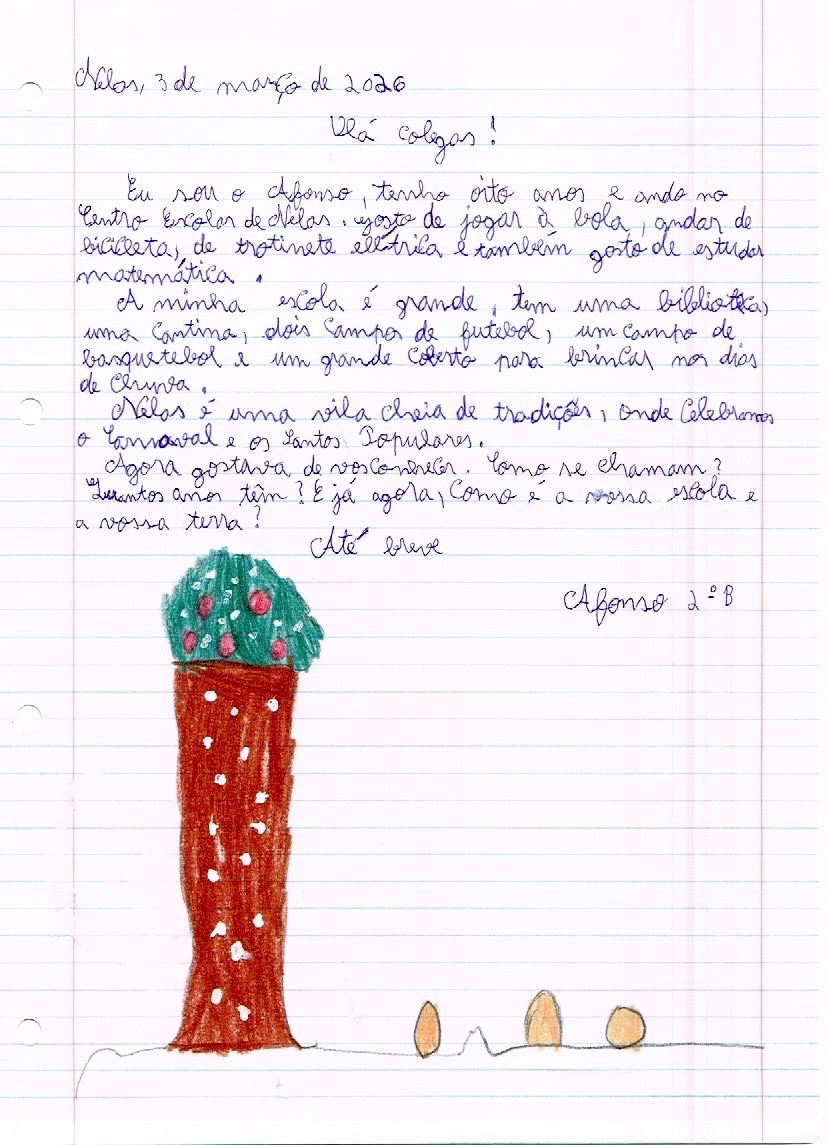 Nelas, 3 de março de 2026
Olá colegas!
Eu sou o Afonso, tenho oito anos e ando no
Centro Escolar de Nelas. Gosto de jogar à bola, andar de
bicicleta, de trotinete elétrica e também gosto de estudar
matemática.
A minha escola é grande, tem uma biblioteca,
uma cantina, dois campos de futebol, um campo de
basquetebol e um grande coberto para brincar nos dias
de chuva.
Nelas é uma vila cheia de tradições, onde celebramos
o Carnaval e os Santos Populares.
Agora gostava de vos conhecer. Como se chamam?
Quantos anos têm? E já agora, como é a vossa escola e
a vossa terra?
Até breve
Afonso 2ºB